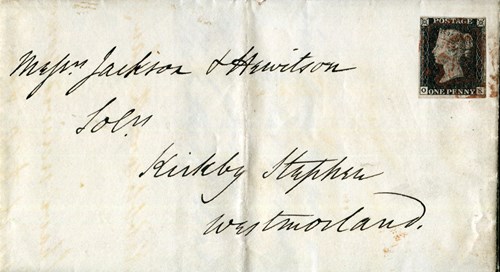 POSTAGE
ONE PENNY
Messrs Jackson & Hewitson
Solrs
Kirkby Stephen
Westmorland.